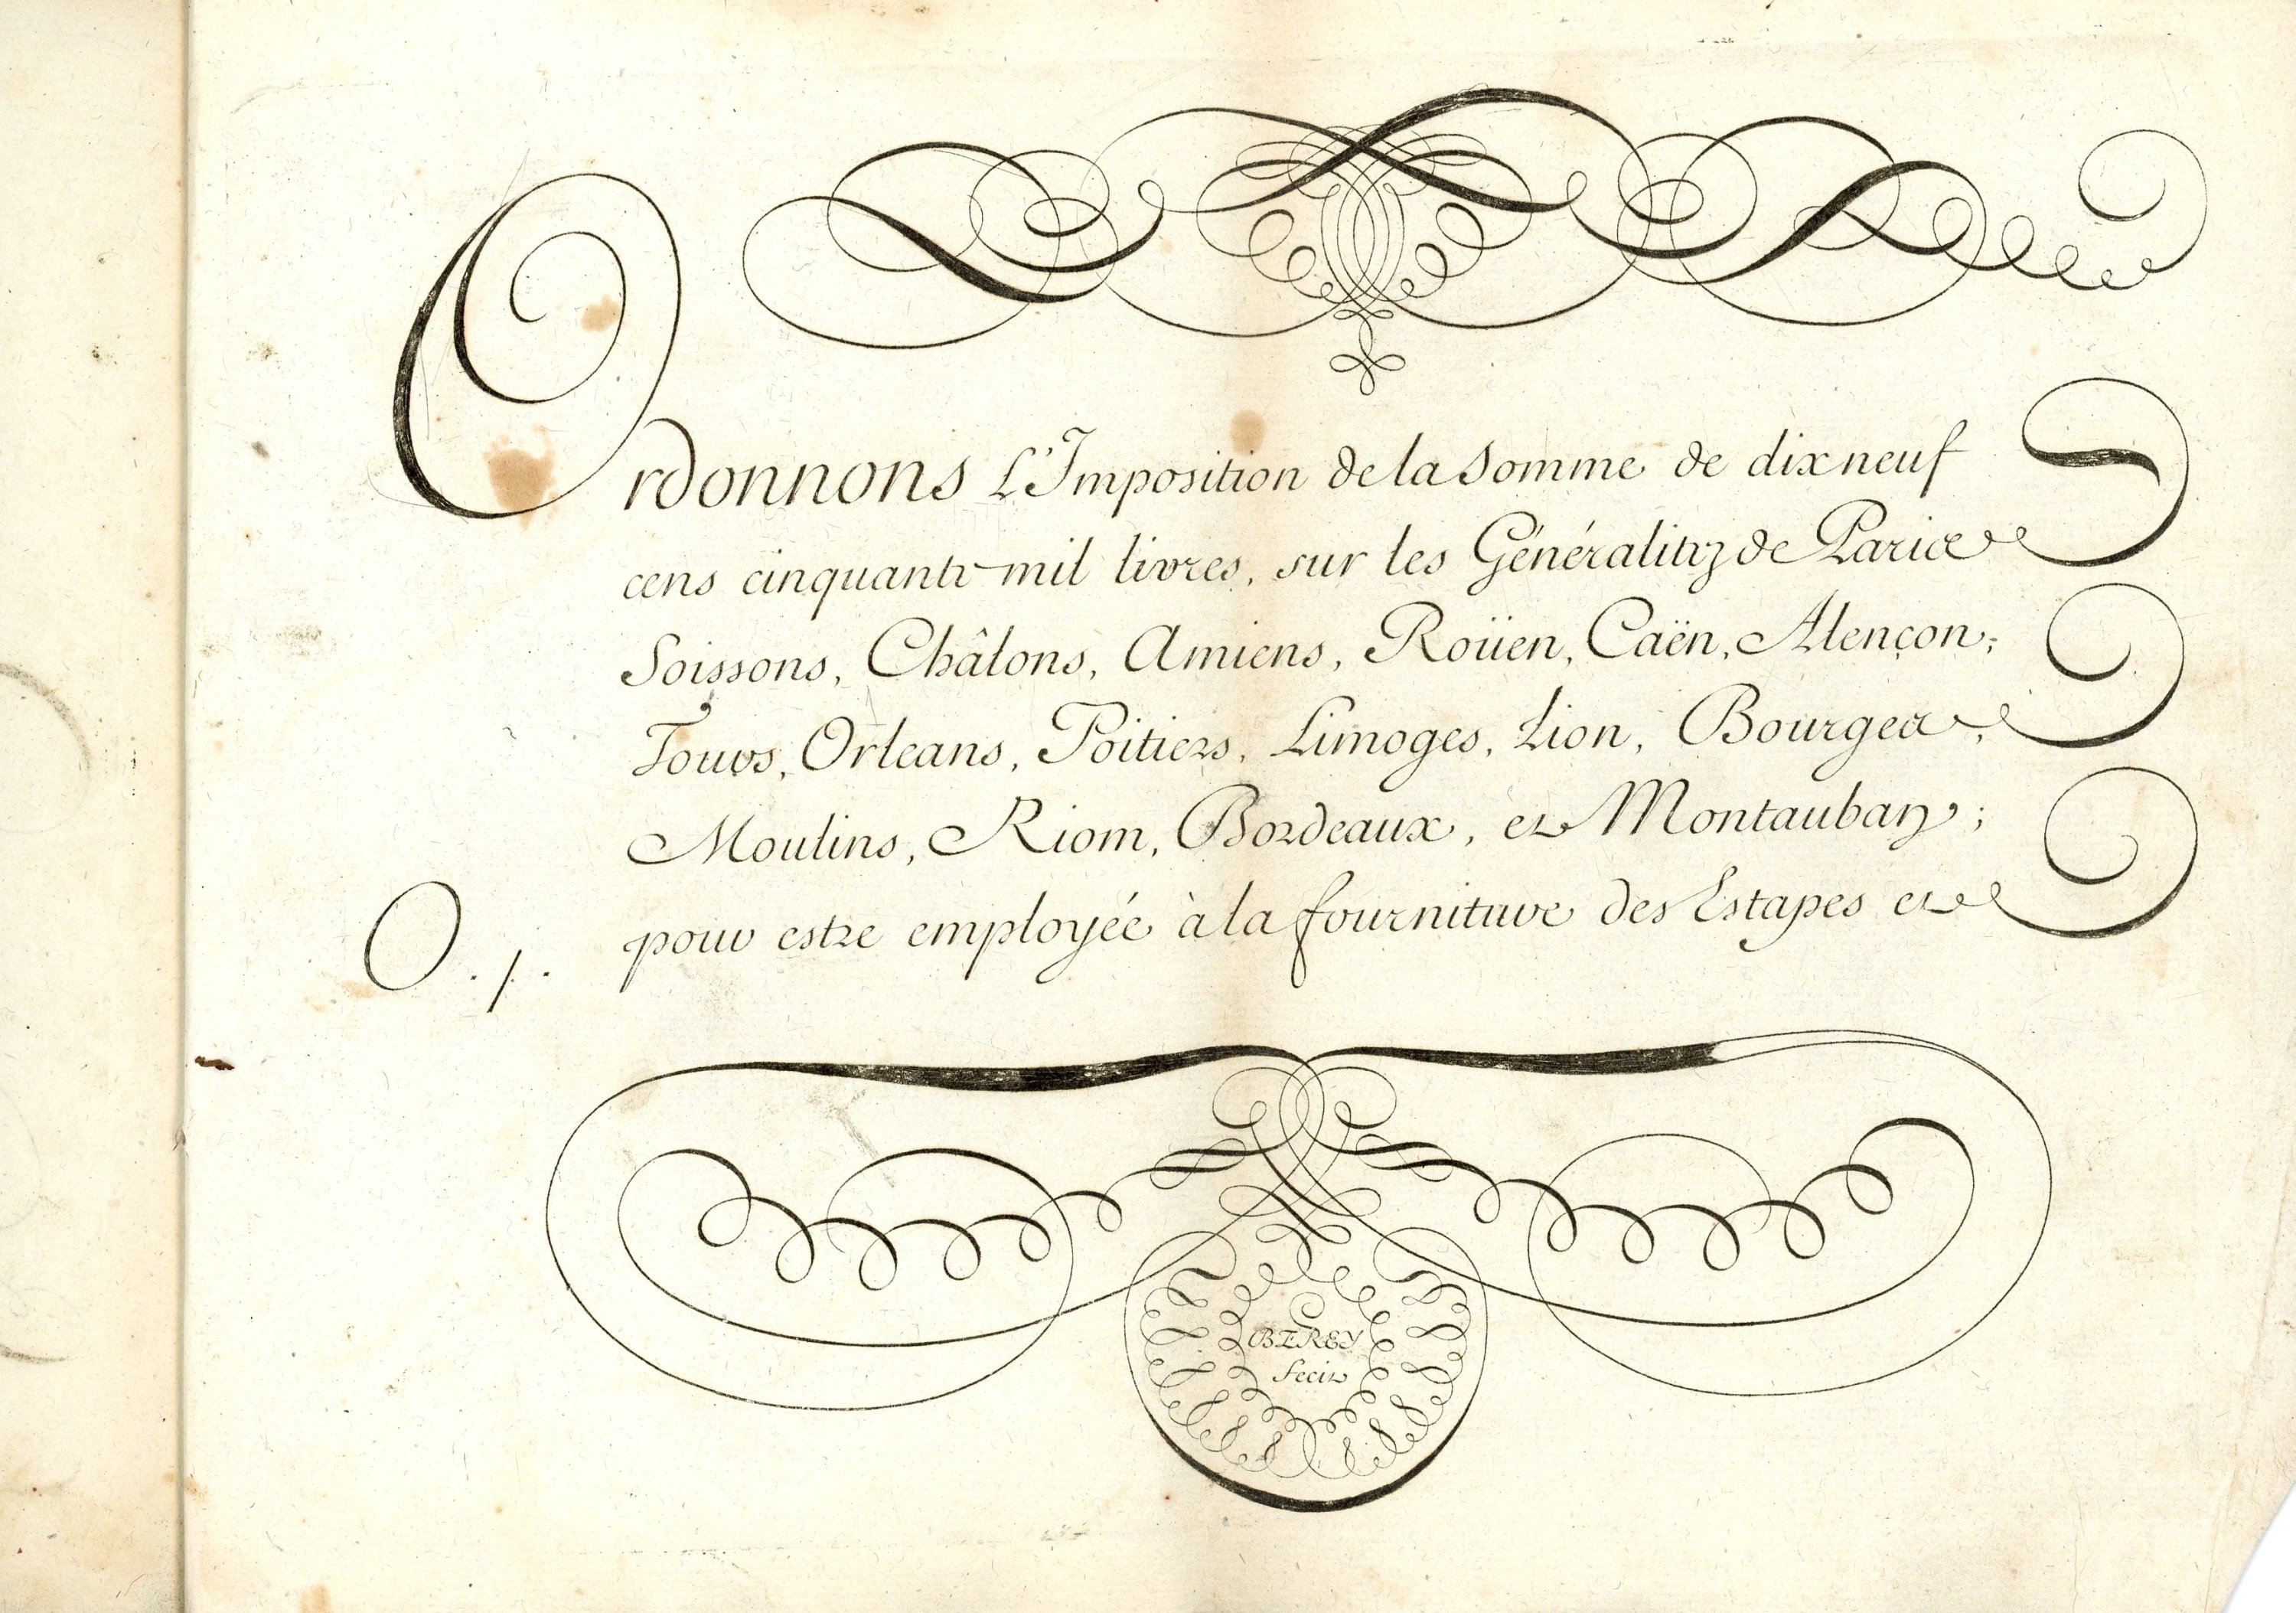 Ordonnons L'Imposition de la Somme de dix neuf
cens cinquante mil livres, sur les Généralitez de Paris
Soissons, Châlons, Amiens, Roüen, Caën, Alençon,
Tours, Orleans, Poitiers, Limoges, Lion, Bourges,
Moulins, Riom, Bordeaux, et Montauban;
O. 1. pour estre employée à la fourniture des Estapes et
BEREY
fecit